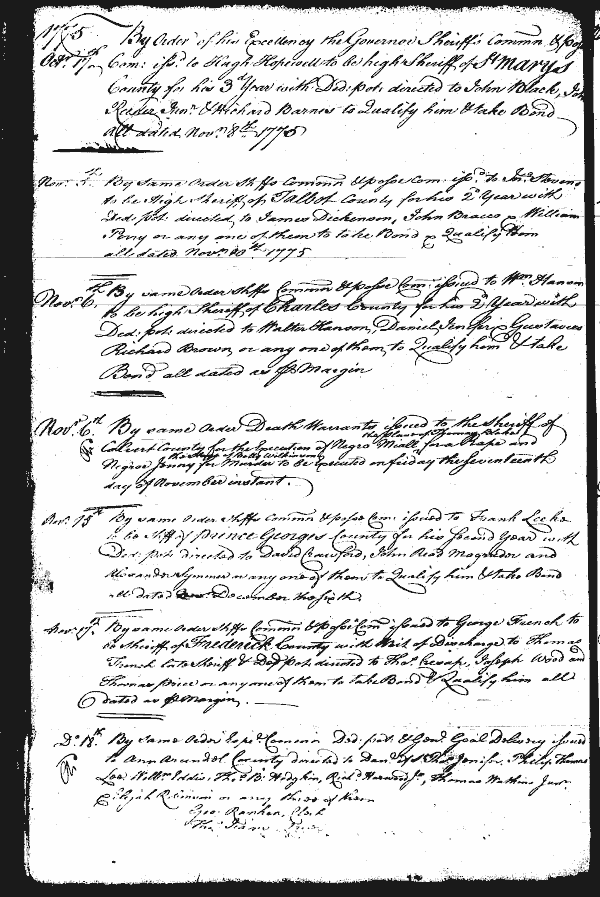 1775
Octr. 17th By Order of his Excellency the Governor Sheriff's Commn. & posse
Com: issd. to Hugh Hopewell to be high Sheriff of St Marys
County for his 3d Year with Ded: pot: directed to John Black, John
Reeder Junr. & Richard Barnes to Qualify him & take Bond
all dated Novr. 8th 1775
Novr. 5th By Same Order Shffs Commn & posse Com: issd. to Jno. Stevens
to be High Sheriff of Talbot County for his 2d Year with
Ded: pot: directed to James Dickenson, John Bracco & William
Perry or any one of them to take Bond & Qualify him
all dated Novr. 10th 1775
Novr. 6th By same Order Shffs Commn & posse Com: issued to Wm. Hanson
to be high Sheriff of Charles County for his 2d Year with
Ded: pot: directed to Walter Hanson, Daniel Jenifer & Gustavus
Richard Brown or any one of them to Qualify him & take
Bond all dated as pr Margin
Novr. 6th By same Order Death Warrants issued to the Sheriff of
the Slave of Thomas
Calvert County for the Execution of Negro Niall for a Rape and
the Slave of Betty
Negroe Jenny for Murder to be Executed on friday the Seventeenth
day of November instant.
Novr. 15th By same Order Shffs Commn & posse Com: issued to Frank Leeke
to be Shff of Prince Georges County for his second Year with
Ded: pot: directed to David Craufurd, John Read Magruder and
Alexander Symmer or any one of them to Qualify him & take Bond
all dated December the sixth
Novr. 17th By same Order Shffs Commn & posse Com issued to George French to
be Sheriff of Frederick County with Writ of Discharge to Thomas
French late Sheriff & Ded: pot: directed to Thos. Cresap, Joseph Wood and
Thomas Price or any one of them to take Bond & Qualify him all
dated as pr Margin.
Do. 18th By same Order Commn Ded: pot: & Genl. Goal Delivery issued
to Ann Arundel County directed to Danl. of St. Thos. Jenifer, Philip Thomas
Lee, Willm. Eddis, Thos. B. Hodgkin, Richd. Thomas Watkins Junr.
& Elijah Robinson or any three of them
Geo: Ranken, Clerk